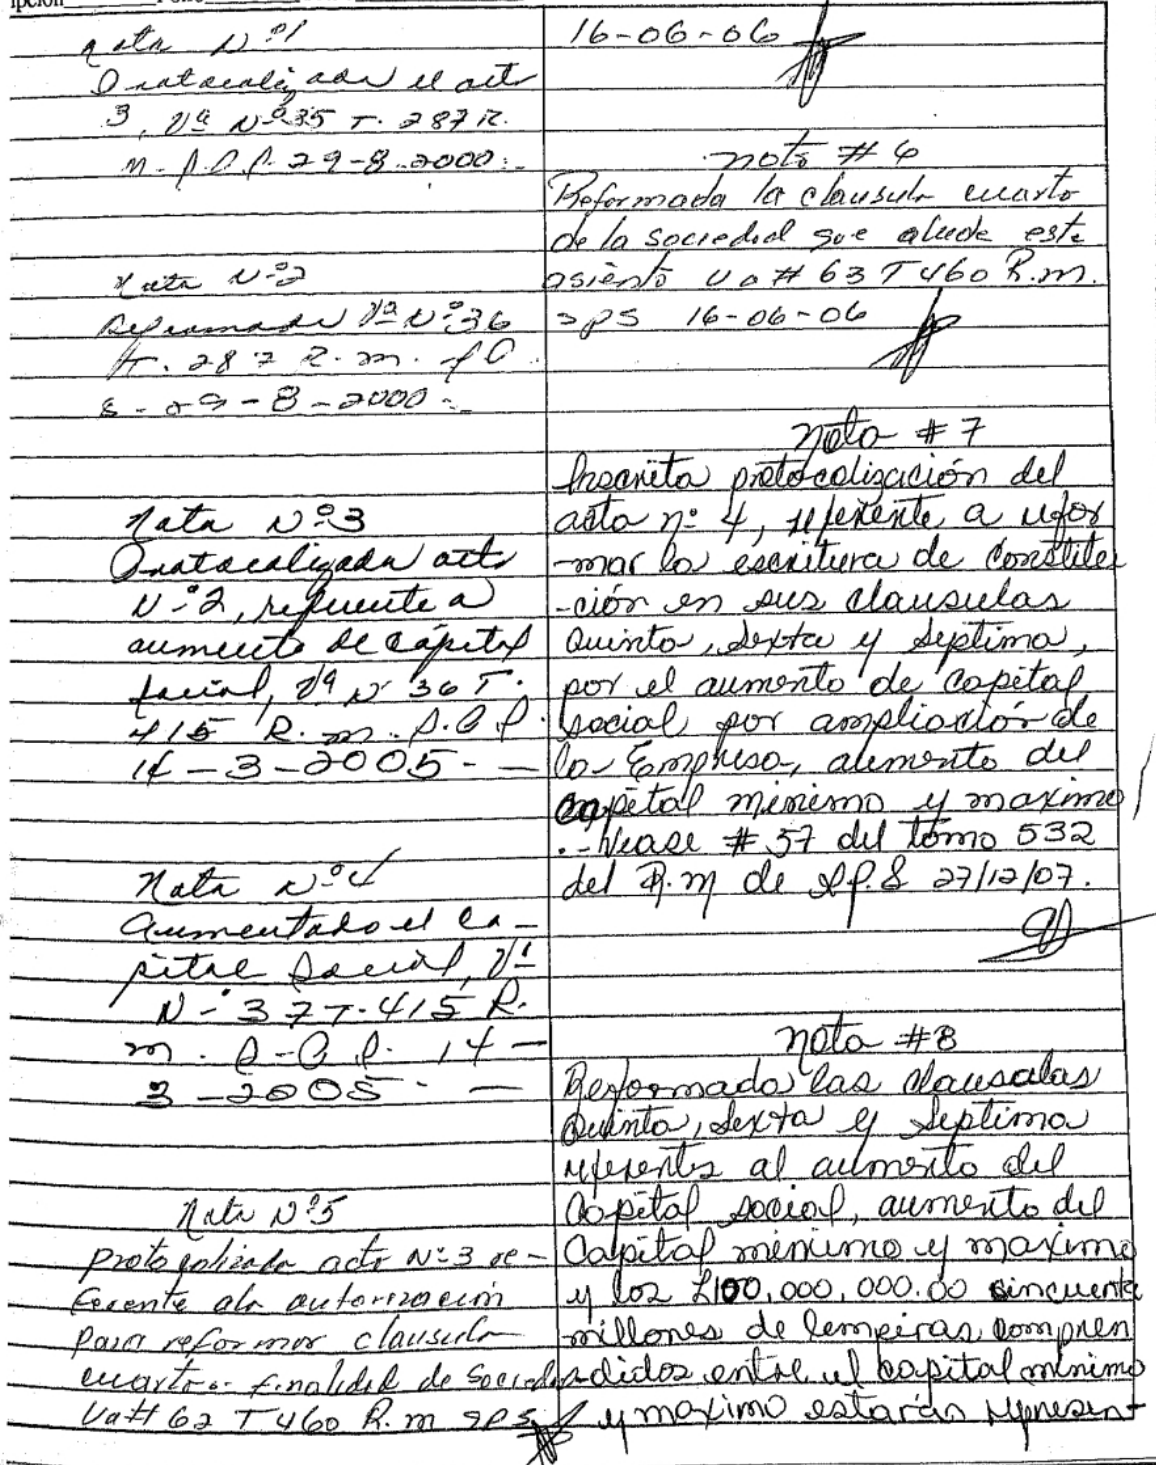 Nota Nº1
Protocalizada el act
3, Vª Nº 35 T. 287 R.
m. S.P.S. 29-8-2000:-
Nota Nº2
Reformada Vª Nº 36
T. 287 R. m. S P
S - 29-8-2000-.
Nota Nº3
Protacalizada acta
Nº2, referente a
aumento de cápital
Social, Vª Nº 36 T.
415 R. m. S.P.S.
14-3-2005-. -
Nota Nº4
Aumentado el ca-
pital Social, Vª
Nº 37 T. 415 R.
m. S-P.S. 14-
3-2005. -
Nota Nº5
Protogolizada acta Nº3 re-
ferente a la autorizacion
para reformar clausula
cuarta. finalidad de Sociedad
Va # 62 T 460 R.m SPS
16-06-06
nota # 6
Reformada la clausula cuarta
de la sociedad que alude este
asiento Va # 63 T 460 R.m.
SPS 16-06-06
Nota # 7
Inscrita protocolización del
acta nº 4, referente a refor
-mar la escritura de Constitu
-ción en sus clausulas
Quinta, Sexta y Septima,
por el aumento de capital
social por ampliación de
la Empresa, aumento del
capital minimo y maximo
.- Vease # 57 del tomo 532
del R.M de S.P.S 27/12/07.
Nota #8
Reformada las clausulas
Quinta, Sexta y Septima
referentes al aumento del
Capital social, aumento del
Capital minimo y maximo
y los L100,000,000.00 cincuenta
millones de lempiras compren
didos entre el capital minimo
y maximo estarán represent